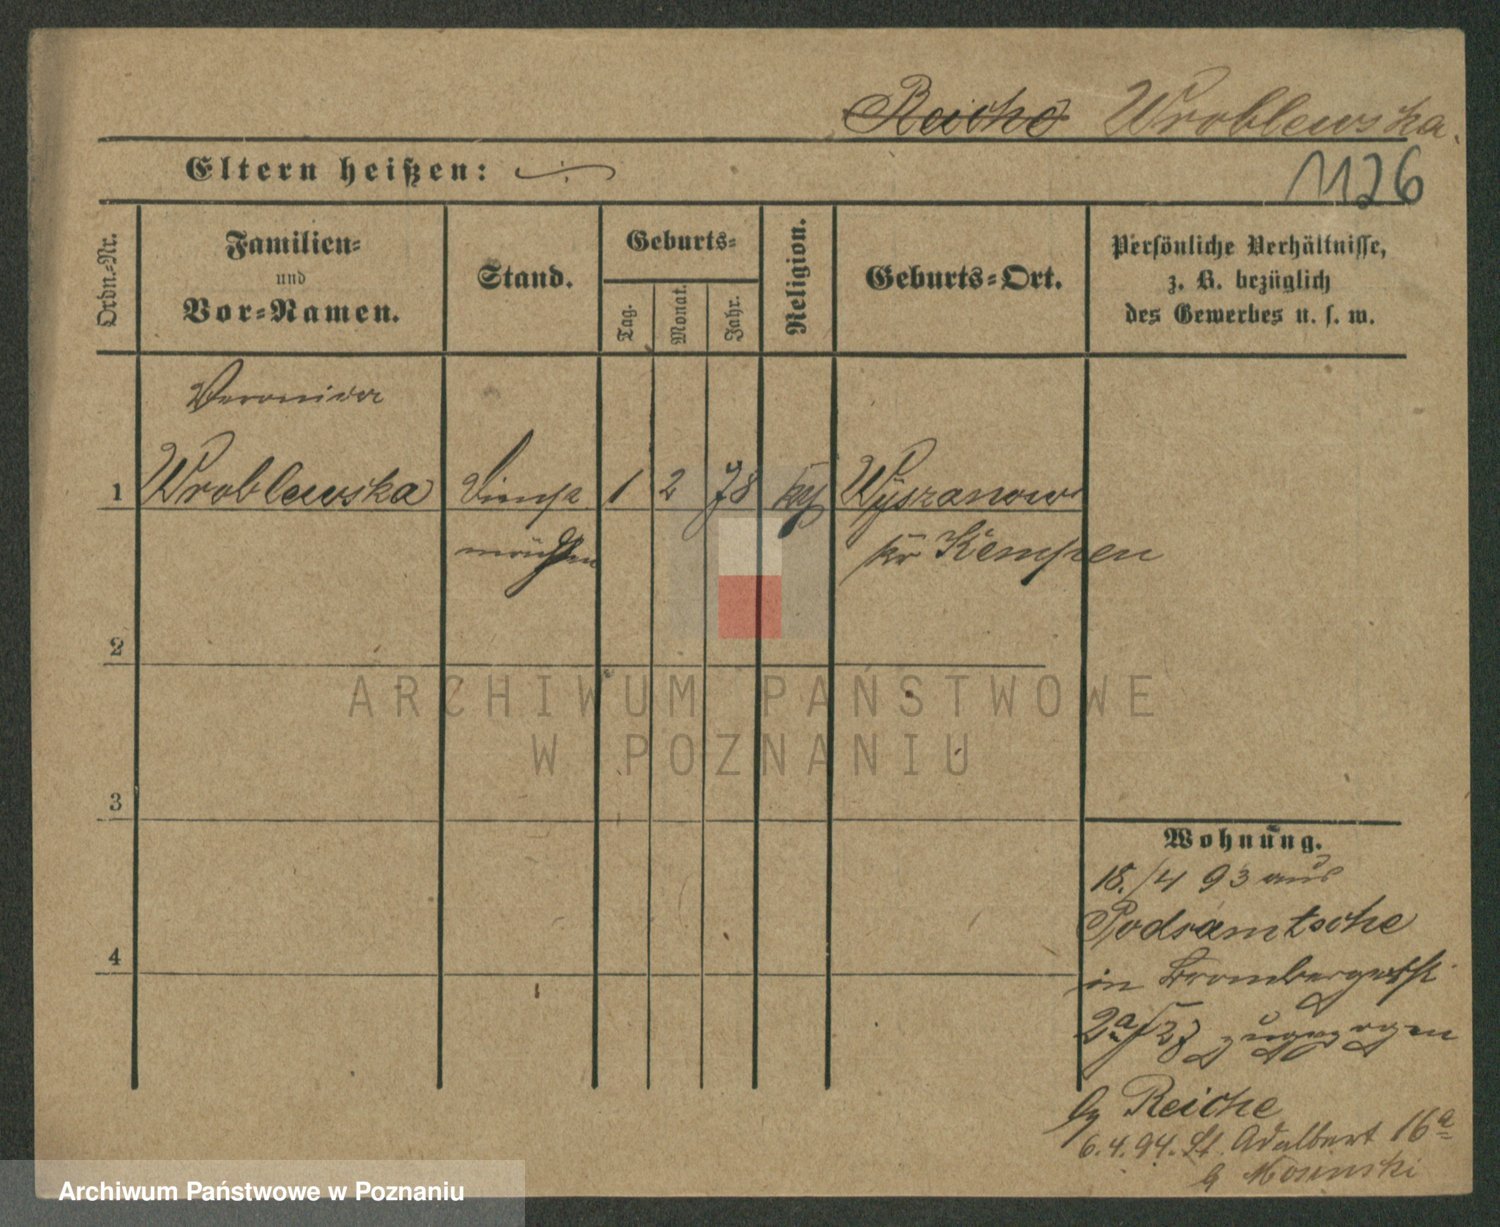 Reiche Wroblewska.
Eltern heißen:
1126
Ordn.-Nr.
Familien-
und
Vor-Namen.
Stand.
Geburts-
Tag.
Monat.
Jahr.
Religion.
Geburts-Ort.
Persönliche Verhältnisse,
z. B. bezüglich
des Gewerbes u. s. w.
Veronika
1 Wroblewska Dienst 1 2 78 kth Wyszanow
mädchen kr Kempen
2
3
4
ARCHIWUM PAŃSTWOWE
W POZNANIU
Wohnung.
18./4 93 aus
Podsamtsche
in Brombergerst
2a zugezogen
by Reiche
6.4.94. St. Adalbert 16a
b Mosinski
Archiwum Państwowe w Poznaniu